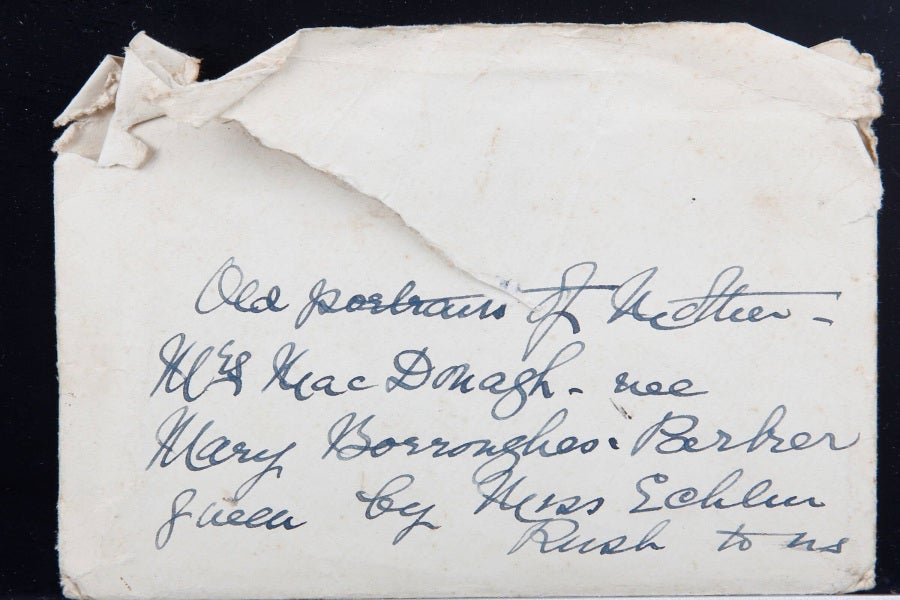 Old portraits of Mother -
Mrs MacDonagh - nee
Mary Borroughes - Berkrer
given by Miss Echlin
Rush to us